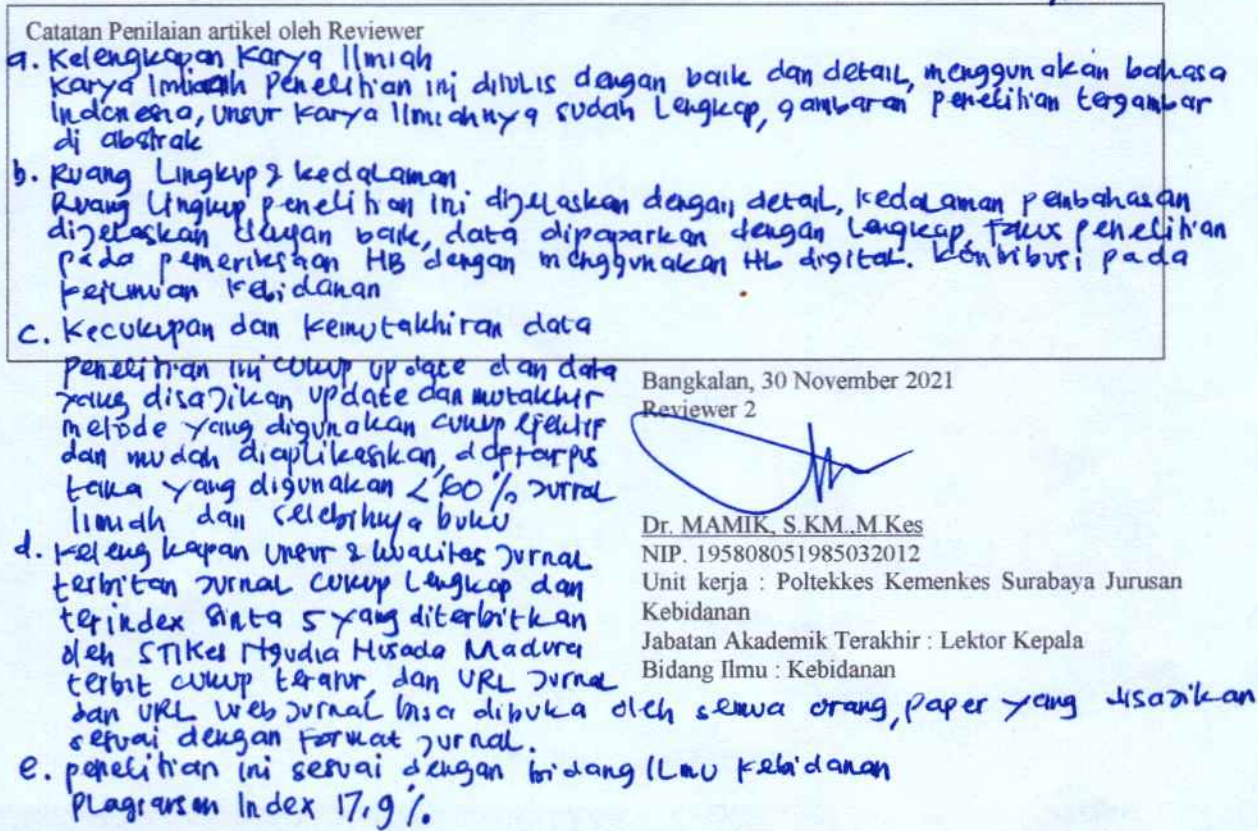 Catatan Penilaian artikel oleh Reviewer
a. Kelengkapan Karya Ilmiah
Karya Penelitian ini ditulis dengan baik dan detail, menggunakan bahasa
Indonesia, unsur karya Ilmiahnya sudah Lengkap, gambaran penelitian tergambar
di abstrak
b. Ruang Lingkup & kedalaman
Ruang Lingkup penelitian ini dijelaskan dengan detail, kedalaman pembahasan
dijelaskan dengan baik, data dipaparkan dengan Lengkap, fokus penelitian
pada pemeriksaan HB dengan menggunakan Hb digital. kontribusi pada
keilmuan kebidanan
c. Kecukupan dan kemutakhiran data
Penelitian ini cukup update dan data
yang disajikan update dan mutakhir
metode yang digunakan cukup efektif
dan mudah diaplikasikan, daftar pus
taka yang digunakan < 60 % jurnal
Ilmiah dan selebihnya buku
d. kelengkapan unsur & kualitas jurnal
terbitan jurnal cukup Lengkap dan
terindex Sinta 5 yang diterbitkan
oleh STIKes Ngudia Husada Madura
terbit cukup teratur, dan URL jurnal
dan URL web jurnal bisa dibuka oleh semua orang, paper yang disajikan
sesuai dengan format jurnal.
e. penelitian ini sesuai dengan bidang Ilmu kebidanan
Plagiarsm Index 17,9 %
Bangkalan, 30 November 2021
Reviewer 2
Dr. MAMIK, S.KM.,M.Kes
NIP. 195808051985032012
Unit kerja : Poltekkes Kemenkes Surabaya Jurusan
Kebidanan
Jabatan Akademik Terakhir : Lektor Kepala
Bidang Ilmu : Kebidanan